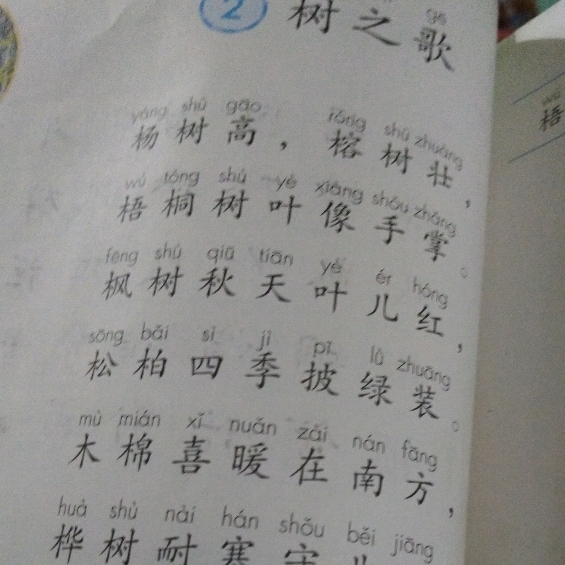 2 树之歌
gē
yáng shù gāo róng shù zhuàng
杨树高，榕树壮，
wú tóng shù yè xiàng shǒu zhǎng
梧桐树叶像手掌。
fēng shù qiū tiān yè ér hóng
枫树秋天叶儿红，
sōng bǎi sì jì pī lǜ zhuāng
松柏四季披绿装。
mù mián xǐ nuǎn zài nán fāng
木棉喜暖在南方，
huà shù nài hán shǒu běi jiāng
桦树耐寒守北
wú
梧